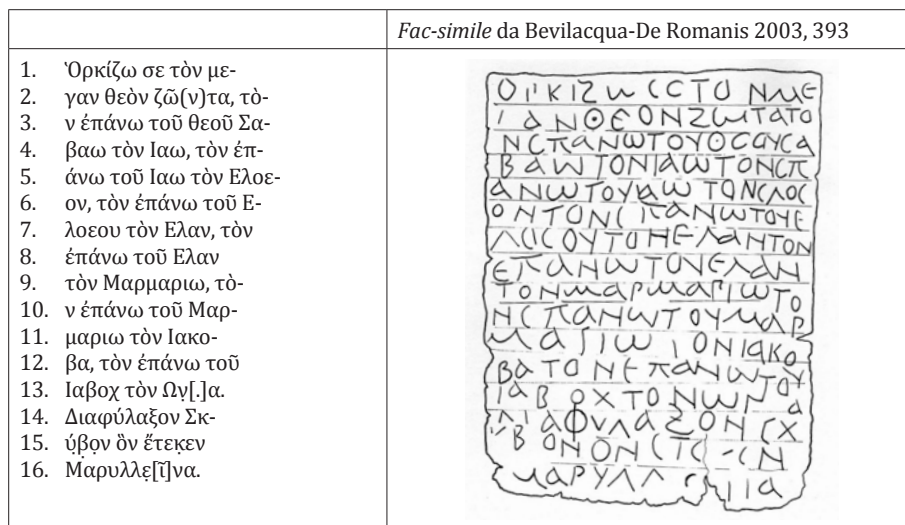 Fac-simile da Bevilacqua-De Romanis 2003, 393
1. Ὁρκίζω σε τὸν με-
2. γαν θεὸν ζῶ(ν)τα, τὸ-
3. ν ἐπάνω τοῦ θεοῦ Σα-
4. βαω τὸν Ιαω, τὸν ἐπ-
5. άνω τοῦ Ιαω τὸν Ελοε-
6. ον, τὸν ἐπάνω τοῦ Ε-
7. λοεου τὸν Ελαν, τὸν
8. ἐπάνω τοῦ Ελαν
9. τὸν Μαρμαριω, τὸ-
10. ν ἐπάνω τοῦ Μαρ-
11. μαριω τὸν Ιακο-
12. βα, τὸν ἐπάνω τοῦ
13. Ιαβοχ τὸν Ων̣[.]α.
14. Διαφύλαξον Σκ-
15. ύβ̣ον ὃν ἔτεκεν
16. Μαρυλλε̣[ῖ]να.
ΑΝΘΕΟΝΖωΤΑΤΟ
ΝϹΠΑΝωΤΟΥΘϹΟΥϹΑ
ΒΑωΤΟΝΙΑωΤΟΝϹΠ
ΑΝωΤΟΥΙΑωΤΟΝϹΛΟϹ
ΟΝΤΟΝϹΠΑΝωΤΟΥΕ
ΛΟΙϹΟΥΤΟΝΕΛΑΝΤΟΝ
ΕΠΑΝωΤΟΝΕΛΑΝ
ΤΟΝΜΑΡΜΑΡΙωΤΟ
ΝϹΠΑΝωΤΟΥΜΑΡ
ΙΟΝΙΑΚΟ
ΒΑΤΟΝΕΠΑΝωΤΟΥ
ΙΑΒΟΧΤΟΝωΝΑ
ΙΑΦΥΛΑΞΟΝϹΧ
ΒΟΝΟΝϹΤϹ
ΜΑΡΥΛΛ